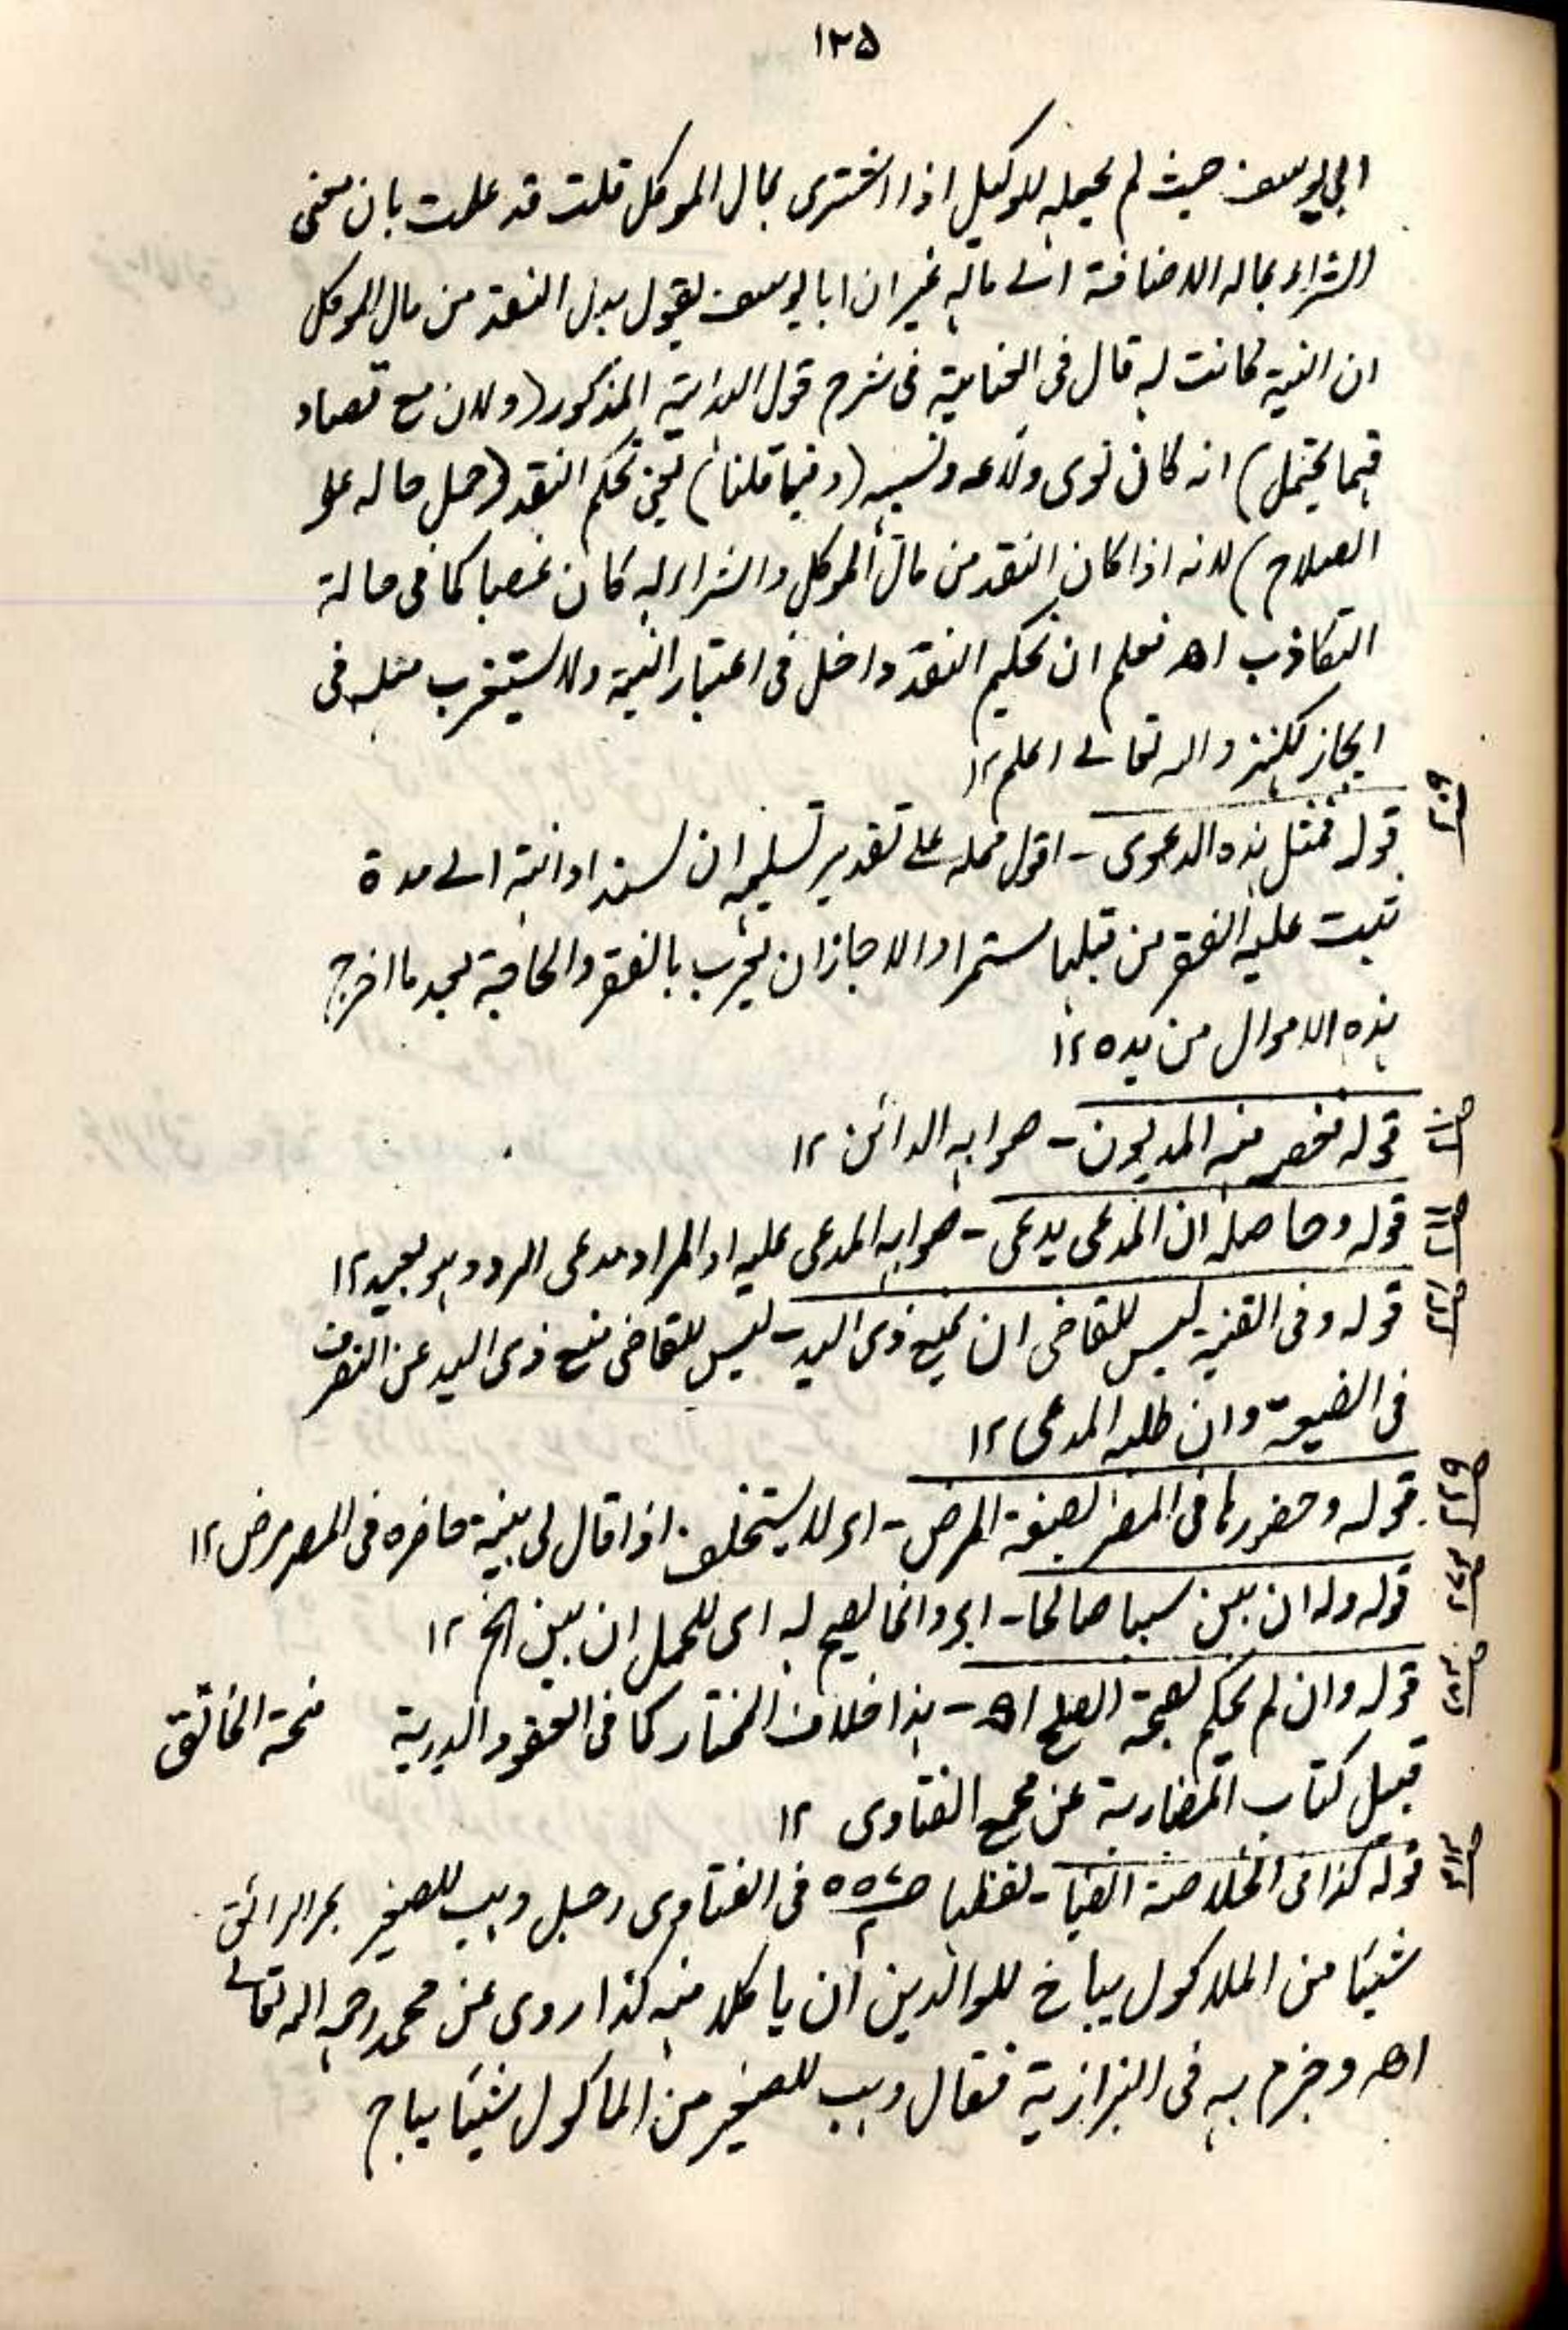 ١٢٥
ابي يوسف حيث لم يجعله للوكيل اذا اشترى بمال الموكل قلت قد علمت بان معنى
الشراء بماله الاضافة الى ماله غير ان ابا يوسف يقول بدل النقد من مال الموكل
ان النية كانت له قال في العناية في شرح قول الهداية المذكور (ولان مع تصاد
فيما يحتمل) انه كان نوى ونسيه (وفيما قلنا) يعنى تحكم النقد (حمل حاله على
الصلاح) لانه اذا كان النقد من مال الموكل والشراء له كان غصبا كما في حالة
التكاذب اھ فعلم ان تحكيم النقد داخل في اعتبار النية ولا يستغرب مثله في
ايجاز الكنز والله تعالى اعلم ١٢
قوله فمثل هذه الدعوى - اقول محله على تقدير تسليمه ان يسند ادانته الى مدة
ثبت عليه الفقر من قبلها مستمرا والا جاز ان يجرب بالفقر والحاجة بعد ما اخرج
هذه الاموال من يده ١٢
قوله منه المديون - صوابه الدائن ١٢
قوله وحاصله ان المدعى يدعى - صوابه المدعى عليه او المراد مدعى الرد وهو بعيد ١٢
قوله وفي القنية ليس للقاضى ان يمنع ذى اليد - ليس للقاضى منع ذى اليد عن التصرف
في الضيعة وان طلبه المدعى ١٢
قوله وحضورها في المصر بصفة المرض - اى لا يستحلف اذا قال لى بينة حاضرة في المصر مرض ١٢
قوله وله ان بين سببا صالحا - اى وانما يصح له اى للحمل ان بين الخ ١٢
قوله وان لم يحكم بصحة الصلح اھ - هذا خلاف المختار كما في العقود الدرية منحة الخالق
قبيل كتاب المضاربة عن مجمع الفتاوى ١٢
قوله كذا في الخلاصة ايضا - لفظها في الفتاوى رجل وهب للصغير بحر الرائق
شيئا من الماكول يباح للوالدين ان ياكلا منه كذا روى عن محمد رحمه الله تعالى
اھ وجزم به في البزازية فقال وهب للصغير من الماكول شيئا يباح